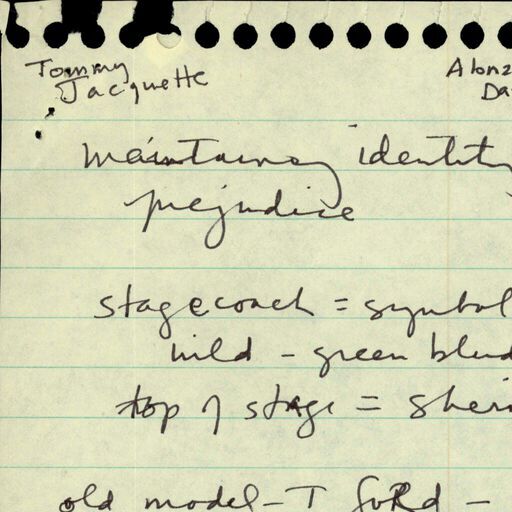 Tommy Alonz
Jacquette Da
maintaining identity
prejudice
stagecoach = symbol
wild - green blend
top of stage = sheri
old model-T foRd -